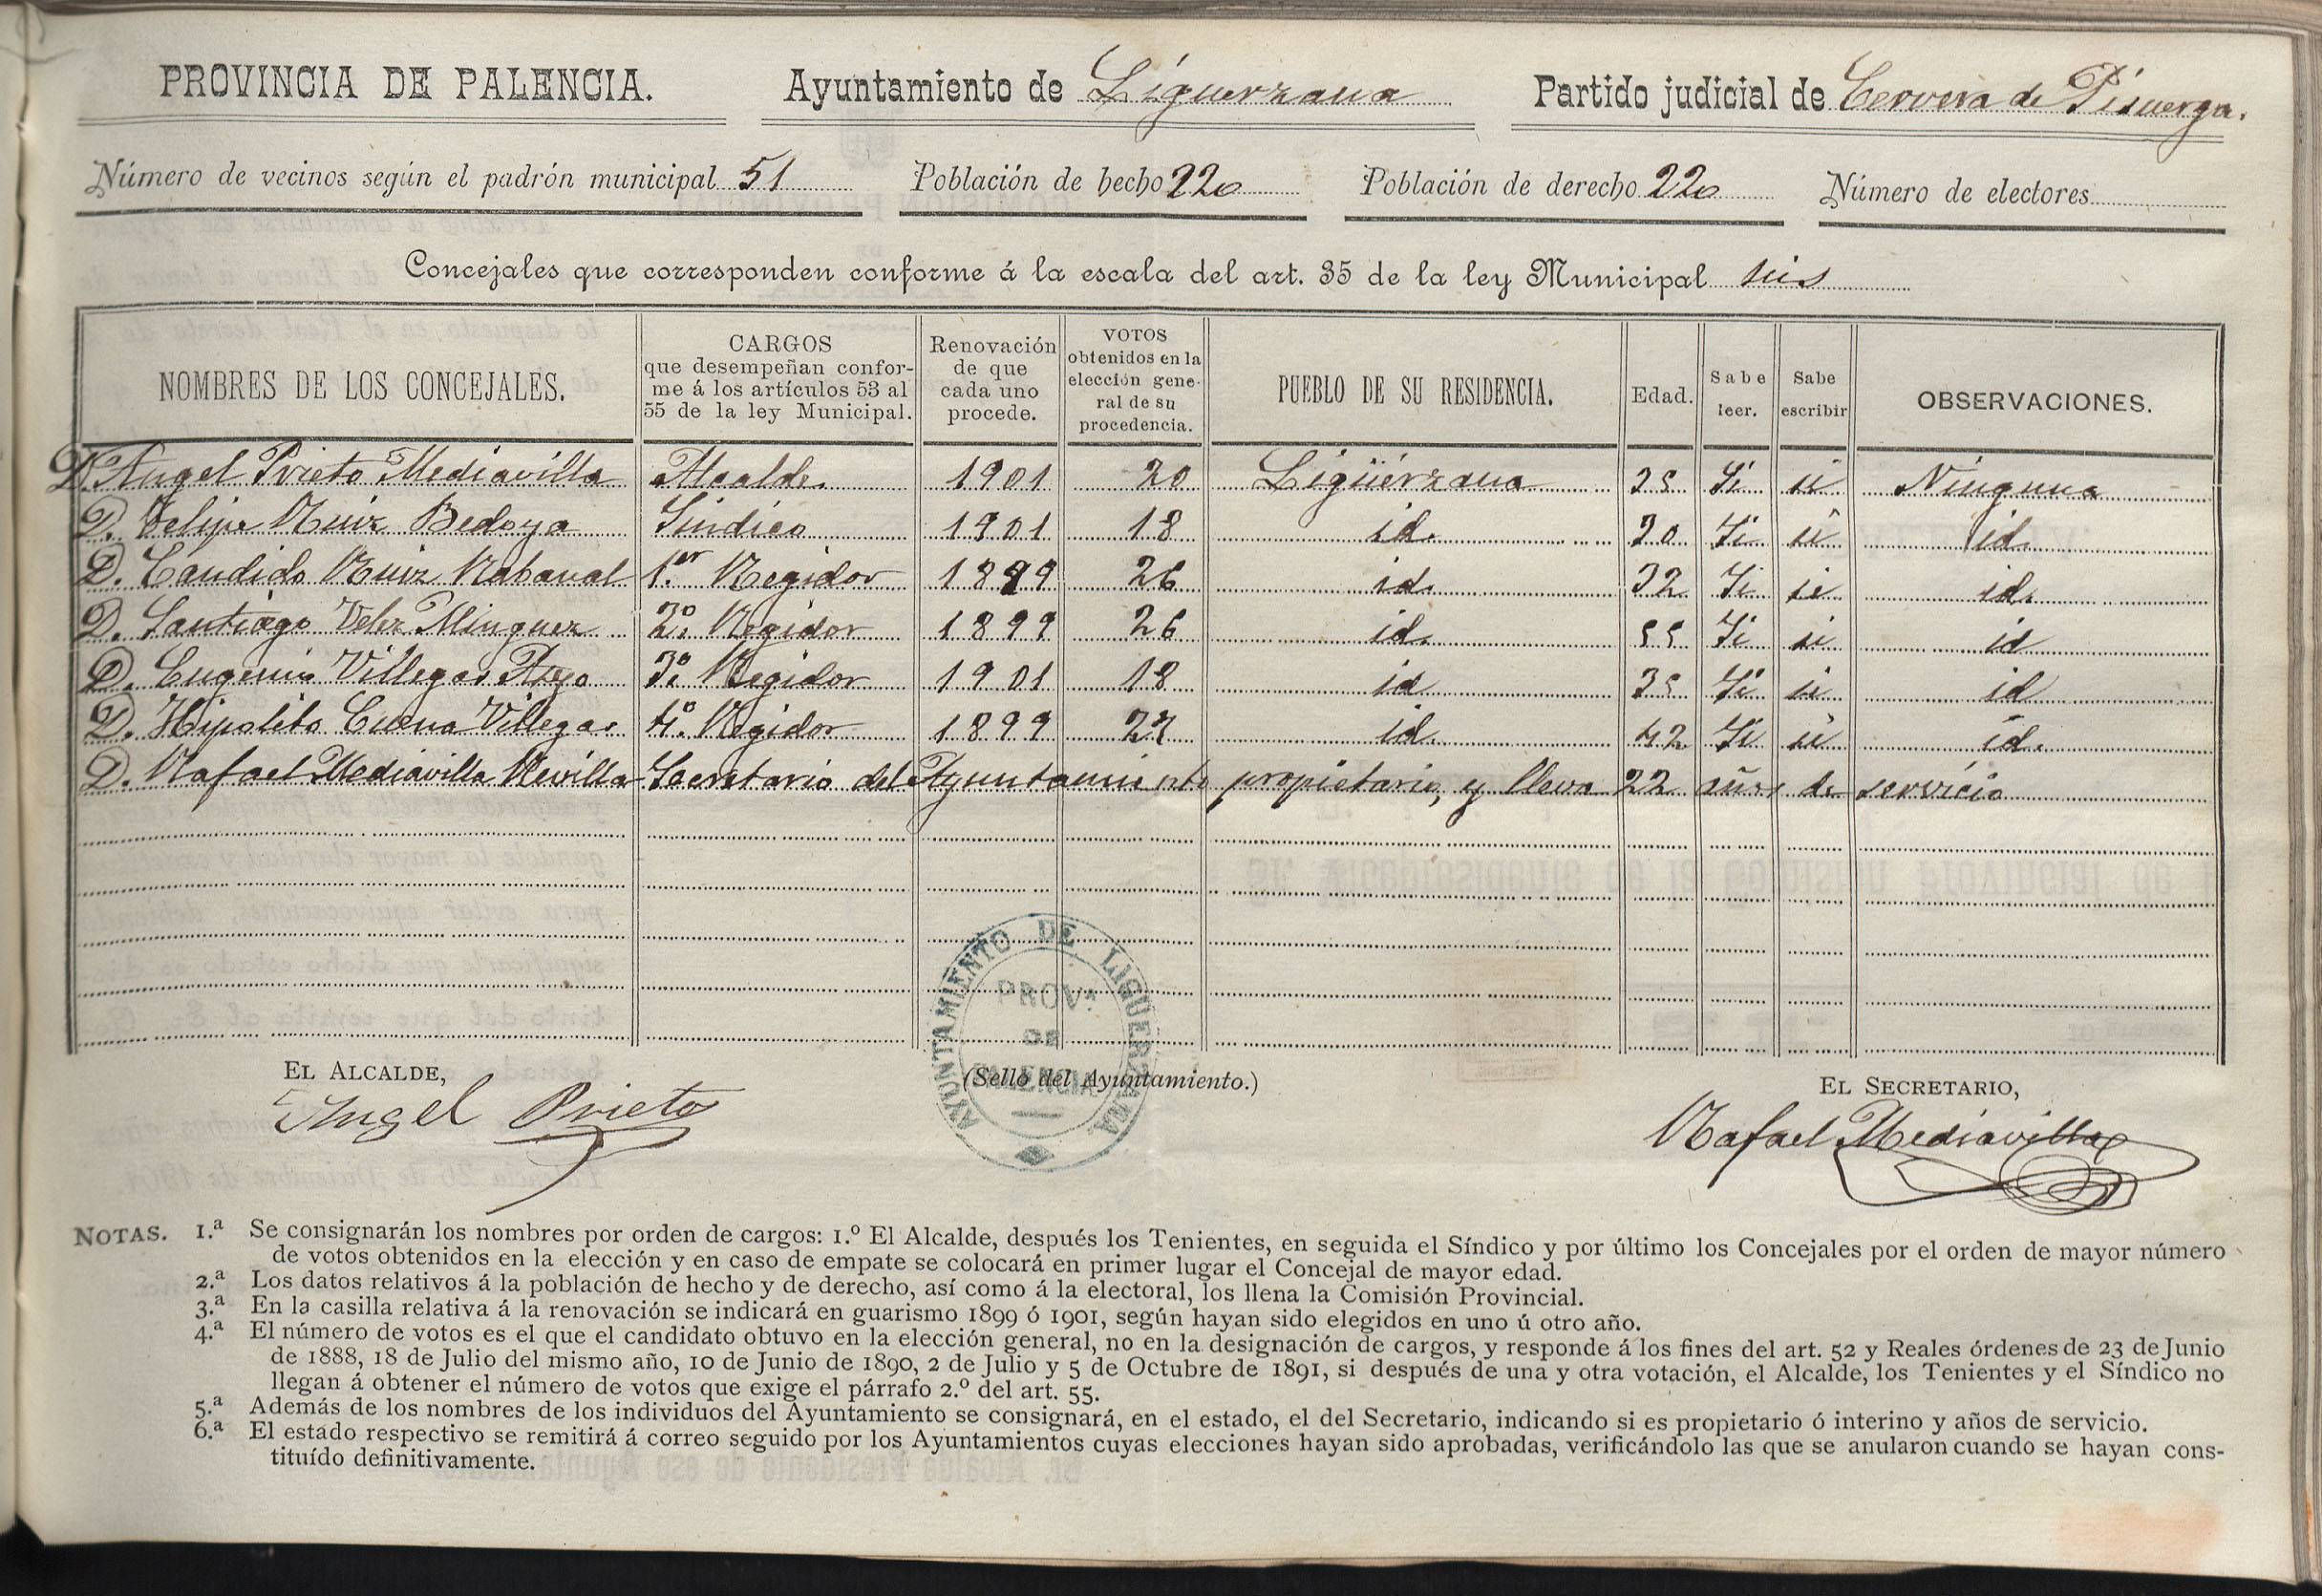 PROVINCIA DE PALENCIA. Ayuntamiento de Ligüerzana Partido judicial de Cervera de Pisuerga.
Número de vecinos según el padrón municipal 51 Población de hecho 220 Población de derecho 220 Número de electores
Concejales que corresponden conforme á la escala del art. 35 de la ley Municipal seis
NOMBRES DE LOS CONCEJALES. CARGOS que desempeñan conforme á los artículos 53 al 55 de la ley Municipal. Renovación de que cada uno procede. VOTOS obtenidos en la elección general de su procedencia. PUEBLO DE SU RESIDENCIA. Edad. Sabe leer. Sabe escribir OBSERVACIONES.
D. Angel Prieto Mediavilla Alcalde. 1901 20 Ligüérzana 35 Si si Ninguna
D. Felipe Ruiz Bedoya Sindico 1901 18 id. 30 Si si id.
D. Cándido Ruiz Rabanal 1.er Regidor 1899 26 id. 32 Si si id.
D. Santiago Velez Minguez 2.º Regidor 1899 26 id. 55 Si si id
D. Eugenio Villegas 3.º Regidor 1901 18 id 35 Si si id
D. Hipolito Cuena Villegas 4.º Regidor 1899 27 id. 42 Si si id.
D. Rafael Mediavilla Revilla Secretario del Ayuntamiento propietario, y lleva 22 años de servicio
AYUNTAMIENTO DE LIGUERZANA
PROV.ª
DE
PALENCIA
EL ALCALDE, (Sello del Ayuntamiento.) EL SECRETARIO,
Angel Prieto Rafael Mediavilla
NOTAS. 1.ª Se consignarán los nombres por orden de cargos: 1.º El Alcalde, después los Tenientes, en seguida el Síndico y por último los Concejales por el orden de mayor número
de votos obtenidos en la elección y en caso de empate se colocará en primer lugar el Concejal de mayor edad.
2.ª Los datos relativos á la población de hecho y de derecho, así como á la electoral, los llena la Comisión Provincial.
3.ª En la casilla relativa á la renovación se indicará en guarismo 1899 ó 1901, según hayan sido elegidos en uno ú otro año.
4.ª El número de votos es el que el candidato obtuvo en la elección general, no en la designación de cargos, y responde á los fines del art. 52 y Reales órdenes de 23 de Junio
de 1888, 18 de Julio del mismo año, 10 de Junio de 1890, 2 de Julio y 5 de Octubre de 1891, si después de una y otra votación, el Alcalde, los Tenientes y el Síndico no
llegan á obtener el número de votos que exige el párrafo 2.º del art. 55.
5.ª Además de los nombres de los individuos del Ayuntamiento se consignará, en el estado, el del Secretario, indicando si es propietario ó interino y años de servicio.
6.ª El estado respectivo se remitirá á correo seguido por los Ayuntamientos cuyas elecciones hayan sido aprobadas, verificándolo las que se anularon cuando se hayan cons-
tituído definitivamente.